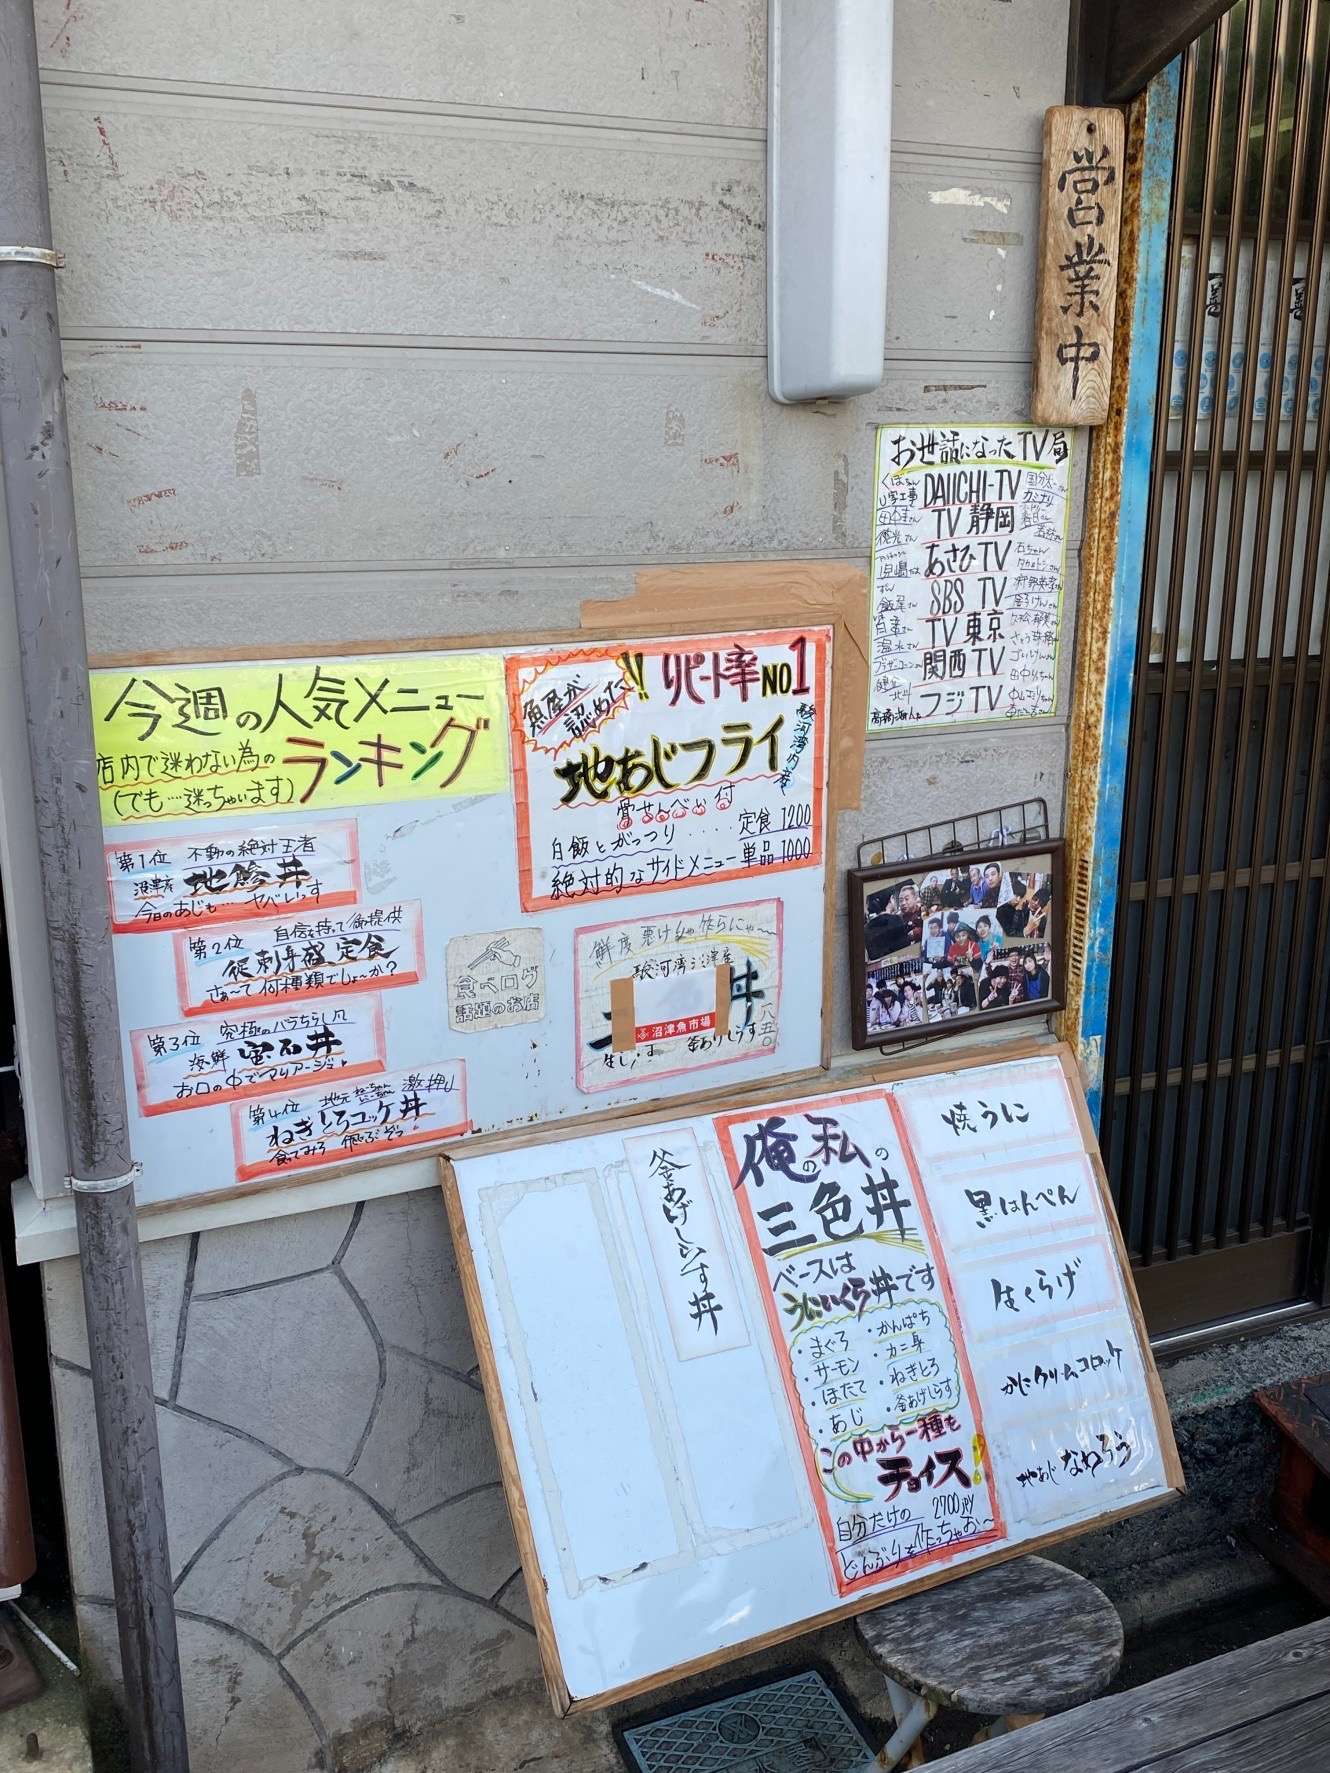 営業中
お世話になったTV局
DAIICHI-TV
TV 静岡
あさひTV
SBS TV
TV 東京
関西TV
フジTV
今週の人気メニュー
ランキング
店内で迷わない為の
(でも…迷っちゃいます)
第1位 不動の絶対王者
沼津産 地鯵丼
今日のあじも… ヤベいっす
第2位 自信を持って御提供
従刺身盛定食
さぁ〜て何種類でしょ〜か?
第3位 究極のバラちらし風
海鮮 宝石丼
お口の中でマリアージュ
第4位 地元 激押し
ねぎとろコロッケ丼
食べてみろ 飛ぶぞっ
魚屋が
認めた!!
リピート率NO1
駿河湾内産
地あじフライ
骨せんべい付
白飯とがっつり……定食 1200
絶対的なサイドメニュー 単品 1000
鮮度悪けりゃ作らにゃ〜
駿河湾沼津産
丼
沼津魚市場
釜ありしらす
八五〇
食べログ
話題のお店
釜あげしらす丼
俺の私の
三色丼
ベースは
うにいくら丼です
・まぐろ ・かんぱち
・サーモン ・カニ身
・ほたて ・ねぎとろ
・あじ ・釜あげしらす
この中から一種も
チョイス!
自分だけの 2700jpy
どんぶりを作っちゃお〜
焼うに
黒はんぺん
生くらげ
かにクリームコロッケ
地あじ なめろう